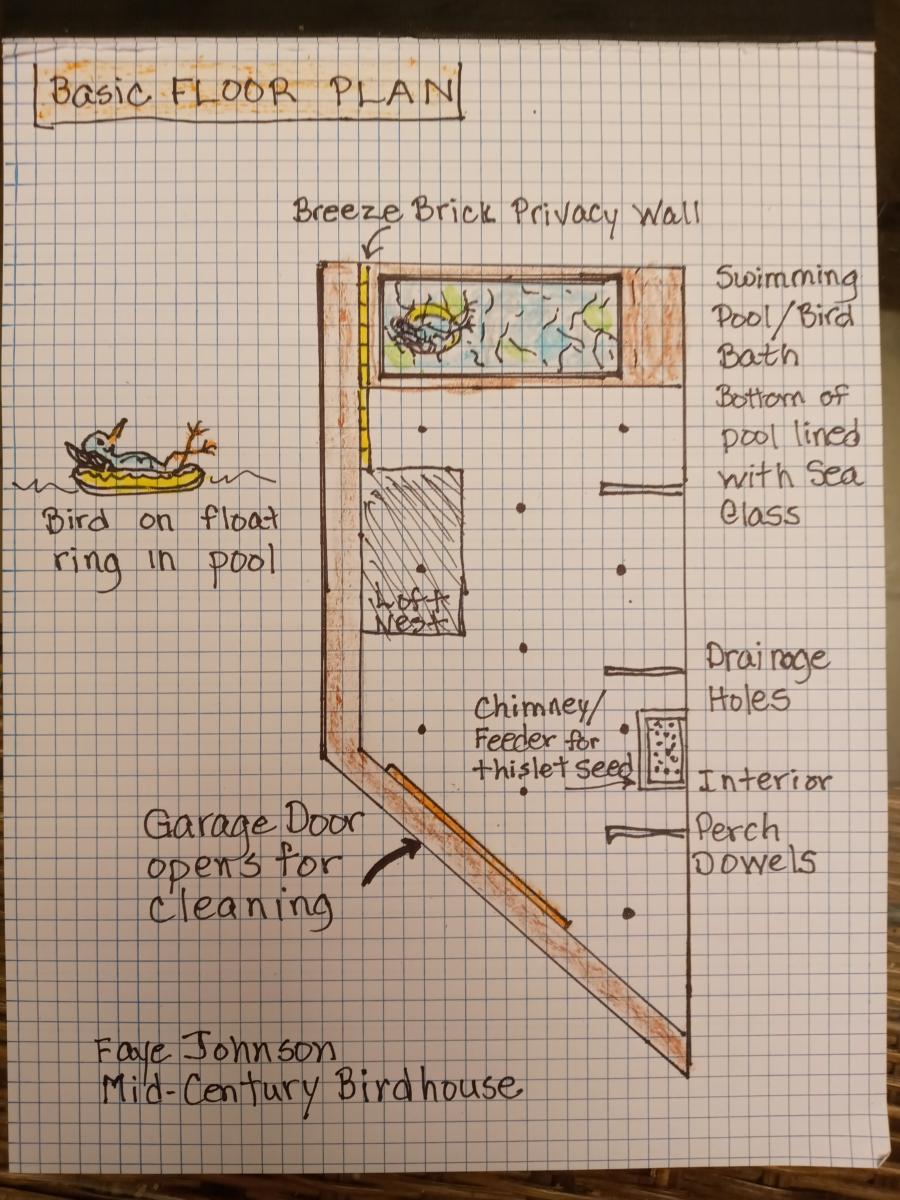 Basic FLOOR PLAN
Breeze Brick Privacy Wall
Swimming
Pool/Bird
Bath
Bottom of
pool lined
with Sea
Glass
Bird on float
ring in pool
Loft
Nest
Drainage
Holes
Chimney/
Feeder for
thislet seed
Interior
Perch
Dowels
Garage Door
opens for
cleaning
Faye Johnson
Mid-Century Birdhouse